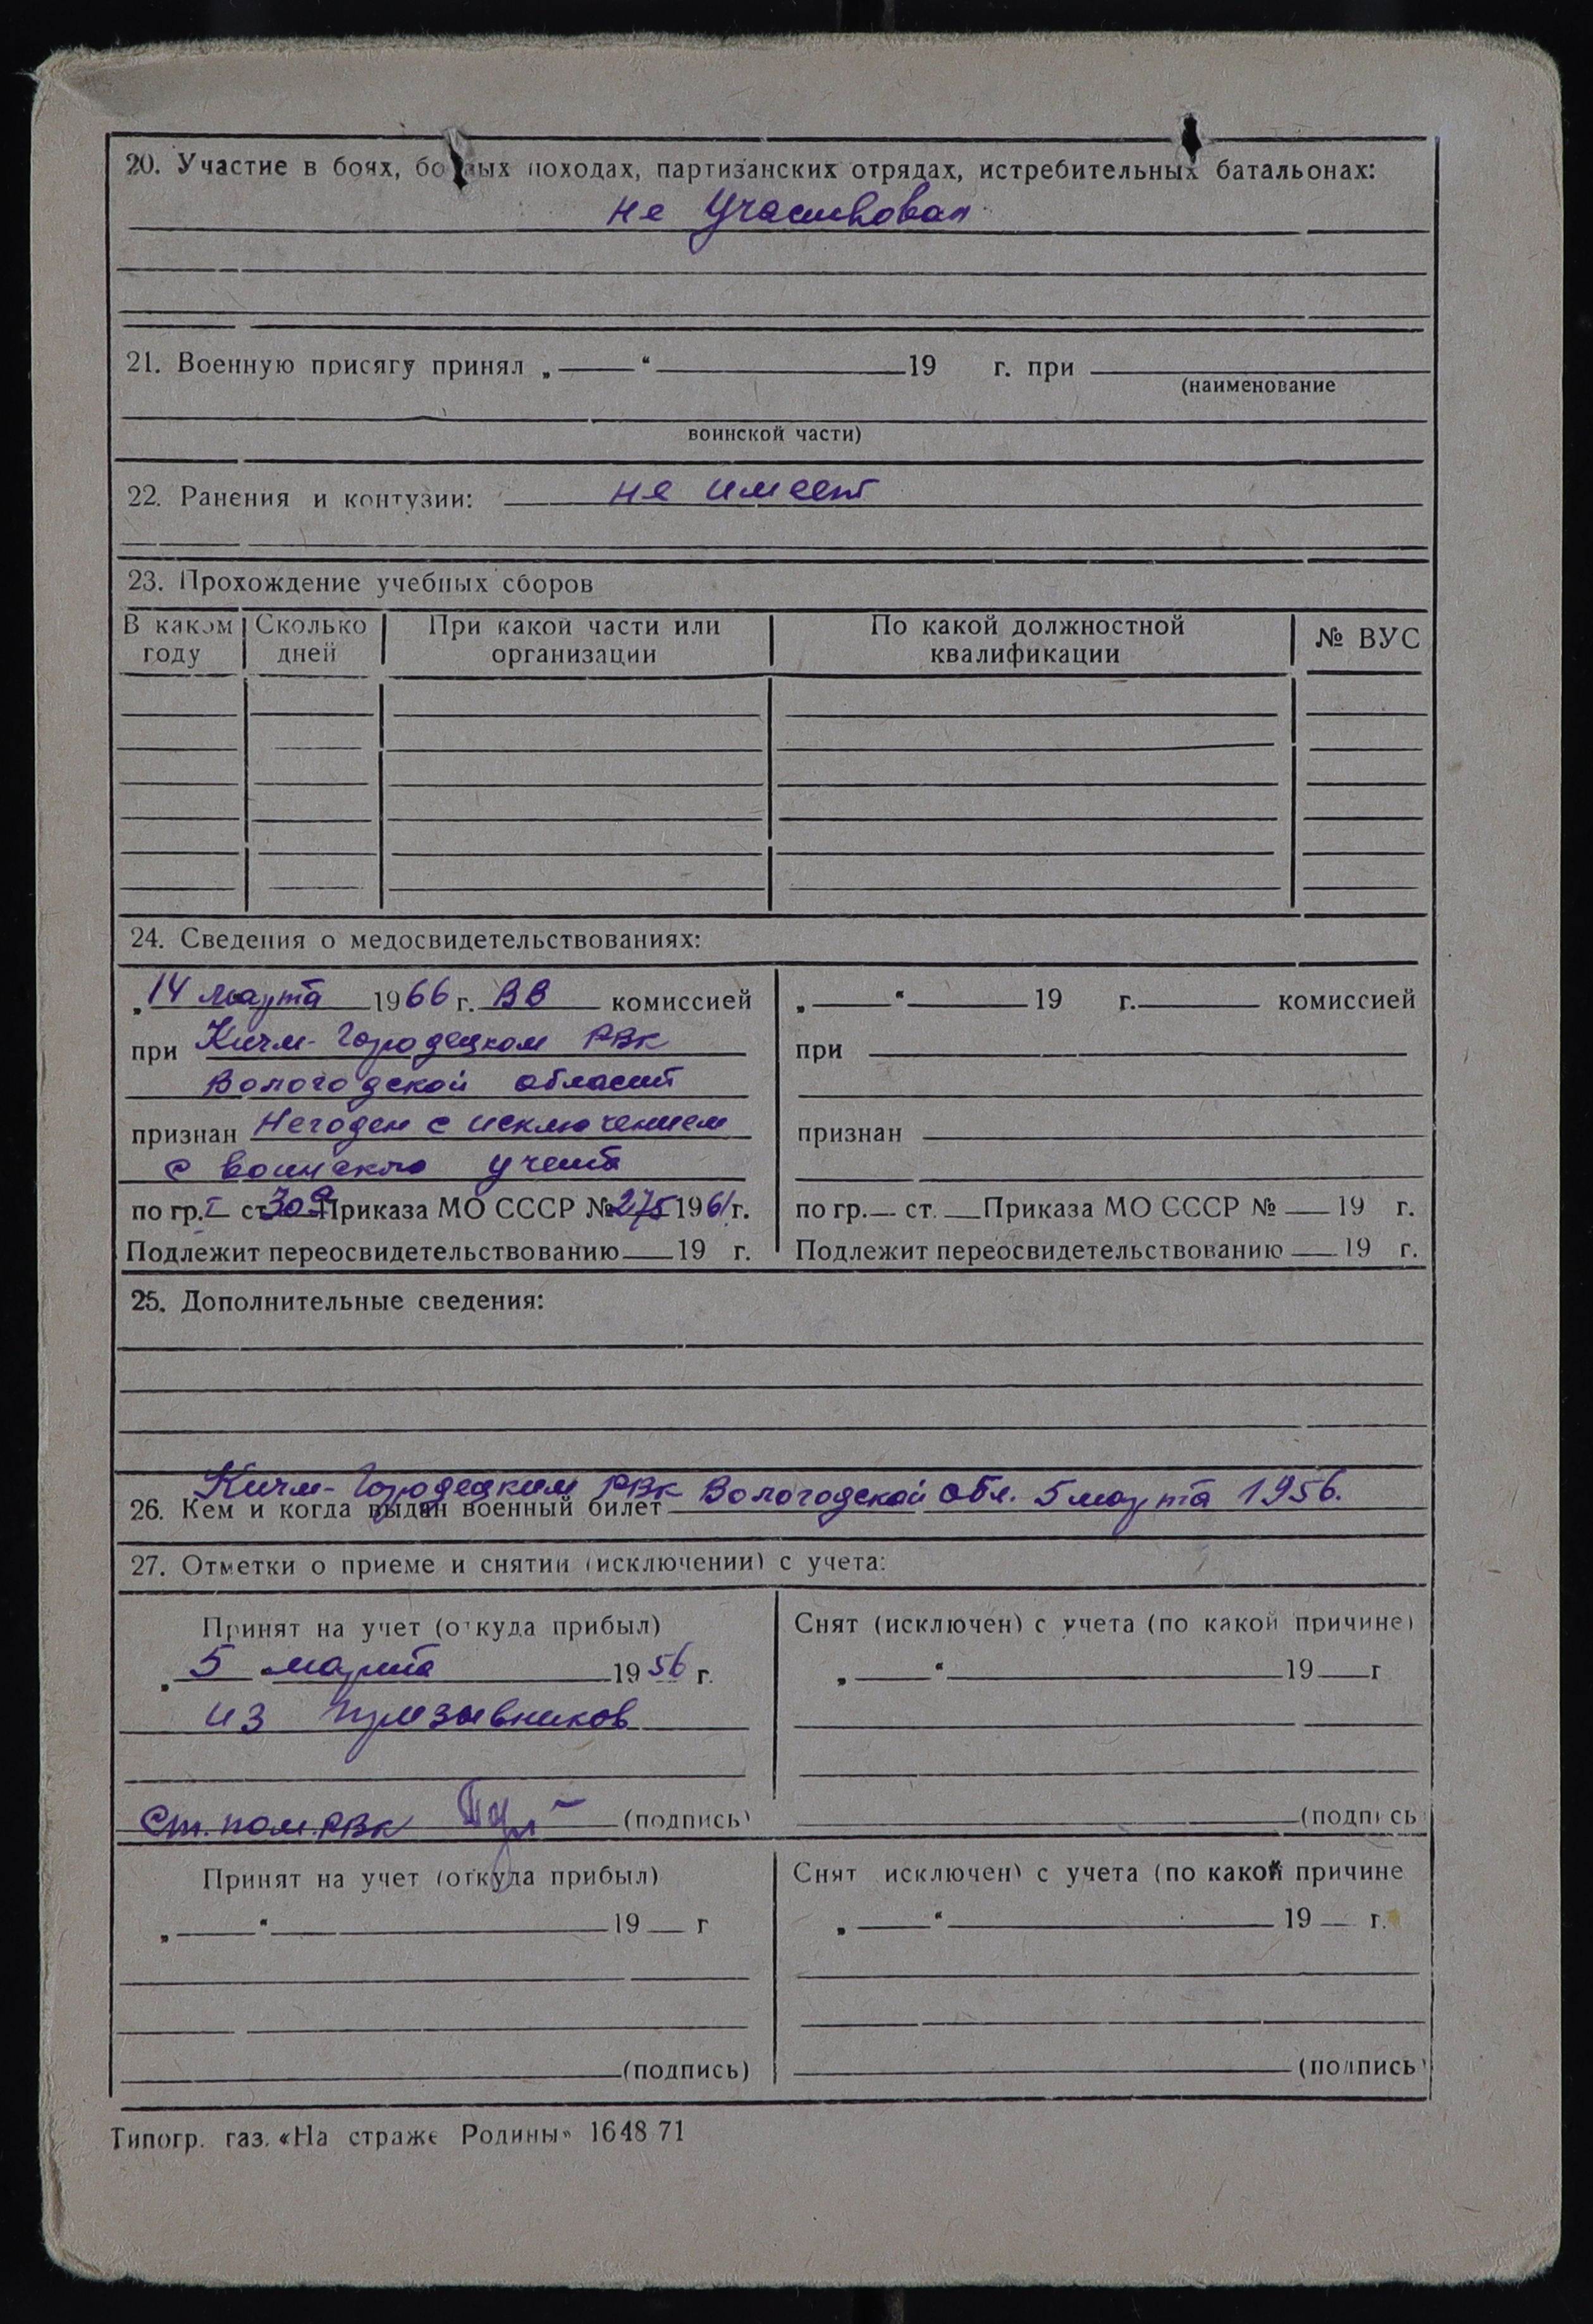 20. Участие в боях, боевых походах, партизанских отрядах, истребительных батальонах:
не участвовал
21. Военную присягу принял „ “ 19 г. при
(наименование
воинской части)
22. Ранения и контузии: не имеет
23. Прохождение учебных сборов
В каком году Сколько дней При какой части или организации По какой должностной квалификации № ВУС
24. Сведения о медосвидетельствованиях:
„14 марта 1966 г. ВВ комиссией
при Кичм-Городецком РВК
Вологодской области
признан Негоден с исключением
с воинского учета
по гр. I ст 30а Приказа МО СССР № 275 1961 г.
Подлежит переосвидетельствованию 19 г.
„ “ 19 г. комиссией
при
признан
по гр. ст. Приказа МО СССР № 19 г.
Подлежит переосвидетельствованию 19 г.
25. Дополнительные сведения:
26. Кем и когда выдан военный билет Кичм-Городецким РВК Вологодской обл. 5 марта 1956.
27. Отметки о приеме и снятии (исключении) с учета:
Принят на учет (откуда прибыл)
„ 5 марта 1956 г.
из призывников
Ст. пом. РВК (подпись)
Снят (исключен) с учета (по какой причине)
„ “ 19 г
(подпись
Принят на учет (откуда прибыл)
„ “ 19 г
(подпись)
Снят исключен) с учета (по какой причине
„ “ 19 г.
(подпись
Типогр. газ. «На страже Родины» 1648 71